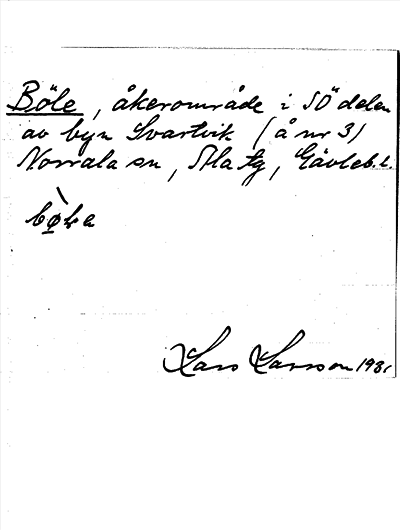 Böle, åkerområde i SÖ delen
av byn Svartvik (å nr 3)
Norrala sn, Ala tg, Gävleb. l.
Lars Larsson 1931